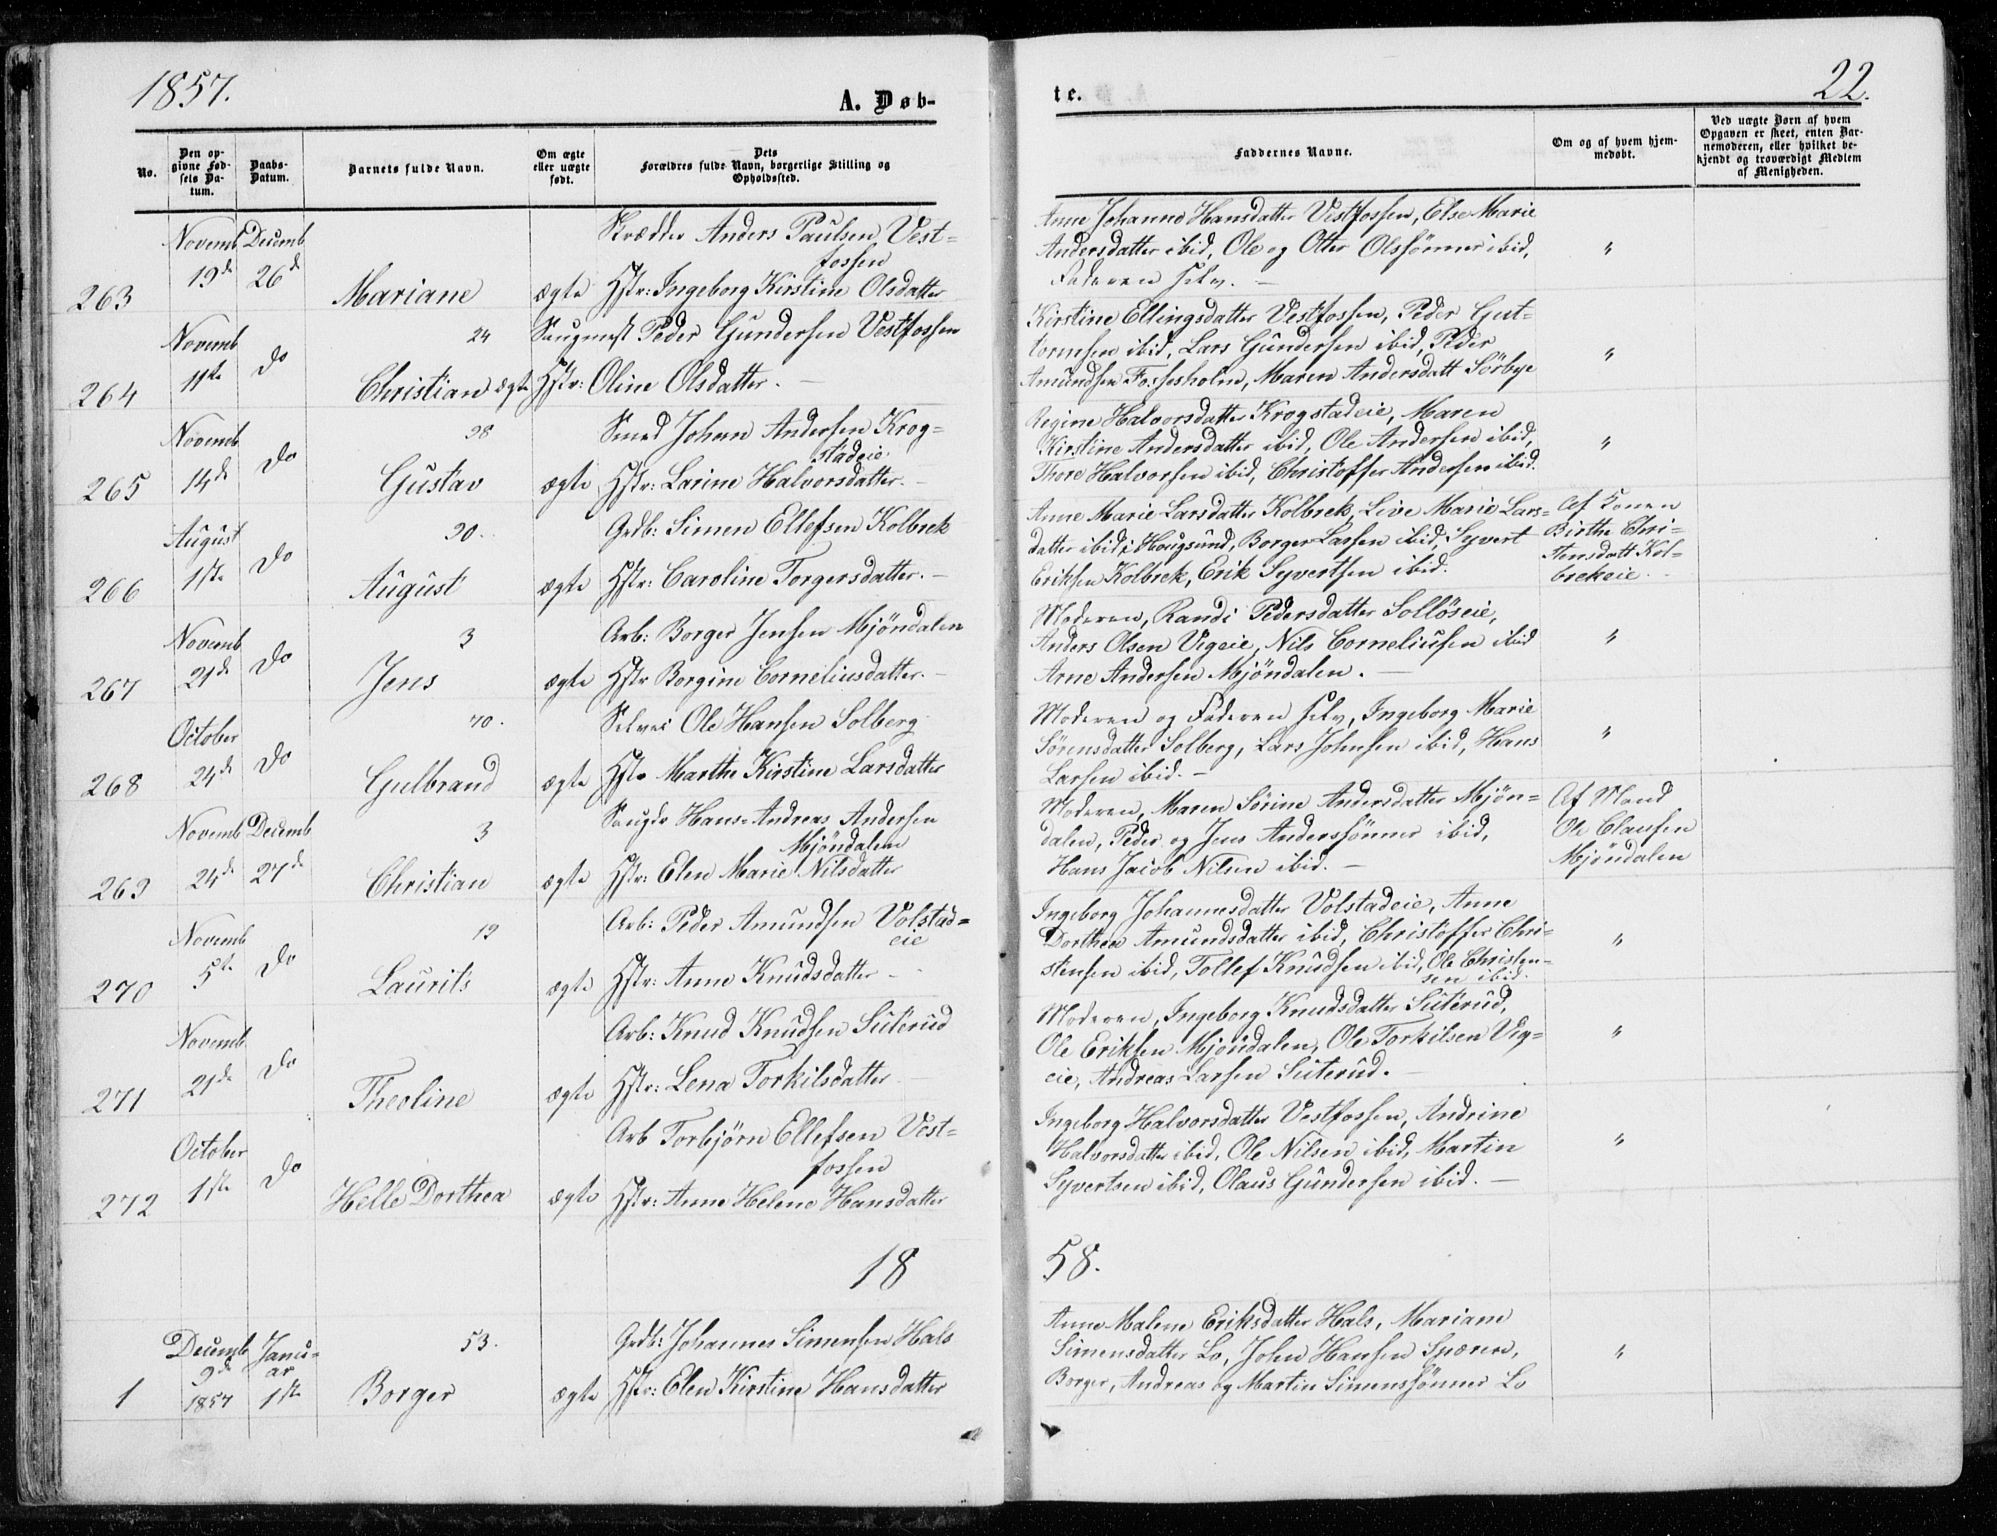 1857.
A. Døb-
te.
22.
No.
Den op-
givne Fød-
sels Da-
tum.
Daabs-
Datum.
Barnets fulde Navn.
Om ægte
eller uægte
født.
Dets
Forældres fulde Navn, borgerlige Stilling og
Opholdssted.
Faddernes Navne.
Om og af hvem hjem-
medøbt.
Ved uægte Børn af hvem
Opgaven er skeet, enten Bar-
nemoderen, eller hvilket be-
kjendt og troværdigt Medlem
af Menigheden.
263
Novemb
19de
Decemb
26d
Mariane
ægte
Skrædder Anders Paulsen Vest-
fossen
Hstr: Ingeborg Kirstine Olsdatter
Anne Johanne Hansdatter Vestfossen, Else Marie
Andersdatter ibid, Ole og Otter Olssønner ibid,
Faderen selv. —
"
264
Novemb
11te
do
24
Christian
ægte
Saugmest Peder Gundersen Vestfossen
Hstr: Oline Olsdatter. —
Kirstine Ellingsdatter Vestfossen, Peder Gut-
tormsen ibid, Lars Gundersen ibid, Peder
Amundsen Fossesholm, Maren Andersdatt Sörbye
"
265
Novemb
14de
do
28
Gustav
ægte
Smed Johan Andersen Krog-
stadeie
Hstr: Larine Halvorsdatter. —
Regine Halvorsdatter Krogstadeie, Maren
Kirstine Andersdatter ibid, Ole Andersen ibid,
Thore Halvorsen ibid, Christoffer Andersen ibid.
"
266
August
1ste
do
30.
August
ægte
Grdb: Simen Ellefsen Kolbrek
Hstr: Caroline Torgersdatter. —
Anne Marie Larsdatter Kolbrek, Live Marie Lars-
datter ibid i Hougsund, Borger Larsen ibid, Syvert
Eriksen Kolbrek, Erik Syvertsen ibid.
Af Konen
Birthe Chri-
stensdatt Kol-
brekeie. —
267
Novemb
21de
do
3
Jens
ægte
Arb: Borger Jensen Mjöndalen
Hstr Borgine Corneliusdatter. —
Moderen, Randi Pedersdatter Sollöseie,
Anders Olsen Vigeie, Nils Corneliusen ibid
Arne Andersen Mjöndalen. —
"
268
October
24de
do
70.
Gulbrand
ægte
Selvei Ole Hansen Solberg
Hstr Marthe Kirstine Larsdatter
Moderen og Faderen selv, Ingeborg Marie
Sörensdatter Solberg, Lars Johnsen ibid, Hans
Larsen ibid. —
"
269
Novemb
24de
Decemb
27de
3
Christian
ægte
Saugdr Hans Andreas Andersen
Mjöndalen
Hstr: Elen Marie Nilsdatter
Moderen, Maren Sörine Andersdatter Mjön-
dalen, Peder og Jens Anderssønner ibid,
Hans Jacob Nilsen ibid. —
Af Mand
Ole Clausen
Mjöndalen
270
Novemb
5te
do
19
Laurits
ægte
Arb: Peder Amundsen Volstad-
eie
Hstr: Anne Knudsdatter —
Ingeborg Johannesdatter Volstadeie, Anne
Dorthea Amundsdatter ibid, Christoffer Chri-
stensen ibid, Tollef Knudsen ibid, Ole Christen-
sen ibid.
"
271
Novemb
21de
do
Theoline
ægte
Arb: Knud Knudsen Suterud
Hstr: Lena Torkilsdatter
Moderen, Ingeborg Knudsdatter Suterud,
Ole Eriksen Mjöndalen, Ole Torkilsen Vig-
eie, Andreas Larsen Suterud. —
"
272
October
1ste
do
Helle Dorthea
ægte
Arb Torbjörn Ellefsen Vest-
fossen
Hstr: Anne Helene Hansdatter
Ingeborg Halvorsdatter Vestfossen, Andrine
Halvorsdatter ibid, Ole Nilsen ibid, Martin
Syvertsen ibid, Olaus Gundersen ibid. —
"
18
58.
1
Decemb
9de
1857
Janu-
ar
1ste
53.
Borger
ægte
Grdb: Johannes Simensen Hals
Hstr: Elen Kirstine Hansdatter
Anne Malene Eriksdatter Hals, Mariane
Simensdatter Lo, John Hansen Speren,
Borger, Andreas og Martin Simenssønner Lo
"